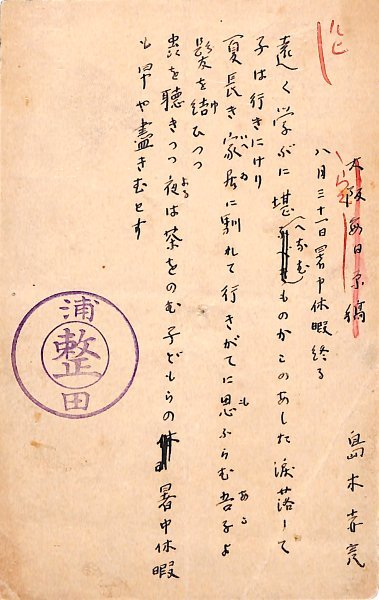 ルビ
大阪毎日原稿
八月三十一日暑中休暇終る
島木赤彦
遠く学ぶに堪へなむものかこのあした涙落して
子は行きにけり
夏長き家居に馴れて行きがてに思ふらむ吾子よ
髪を結ひつつ
虫を聴きつつ夜は茶をのむ子どもらの暑中休暇
も早や盡きむとす
浦田
整